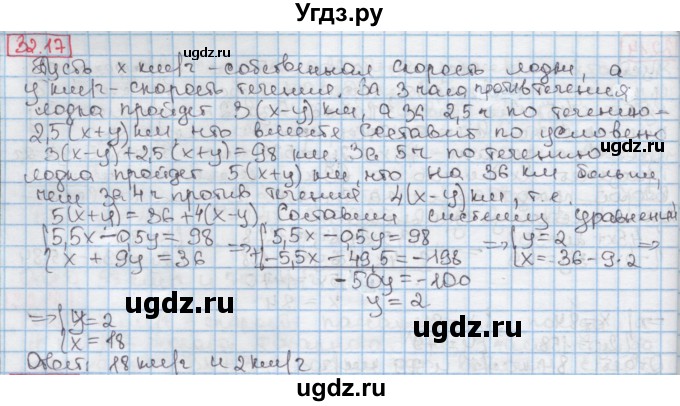 Угдз.ру
32.17
Пусть x км/ч - собственная скорость лодки, а
y км/ч - скорость течения. За 3 часа против течения
лодка пройдет 3(x-y) км, а за 2,5 ч по течению -
2,5(x+y) км, что вместе составит по условию
3(x-y)+2,5(x+y)=98 км. За 5 ч по течению
лодка пройдет 5(x+y) км, что на 36 км больше,
чем за 4 ч против течения 4(x-y) км, т.е.
5(x+y)=36+4(x-y). Составим систему уравнений
{5,5x-0,5y=98 => +{5,5x-0,5y=98 => {y=2 =>
{x+9y=36 {-5,5x-49,5=-198 {x=36-9·2
-50y=-100
y=2
=> {y=2
{x=18
Ответ: 18 км/ч и 2 км/ч
ugdz.ru
ugdz.ru
ugdz.ru
ugdz.ru
ugdz.ru
ugdz.ru
ugdz.ru
ugdz.ru